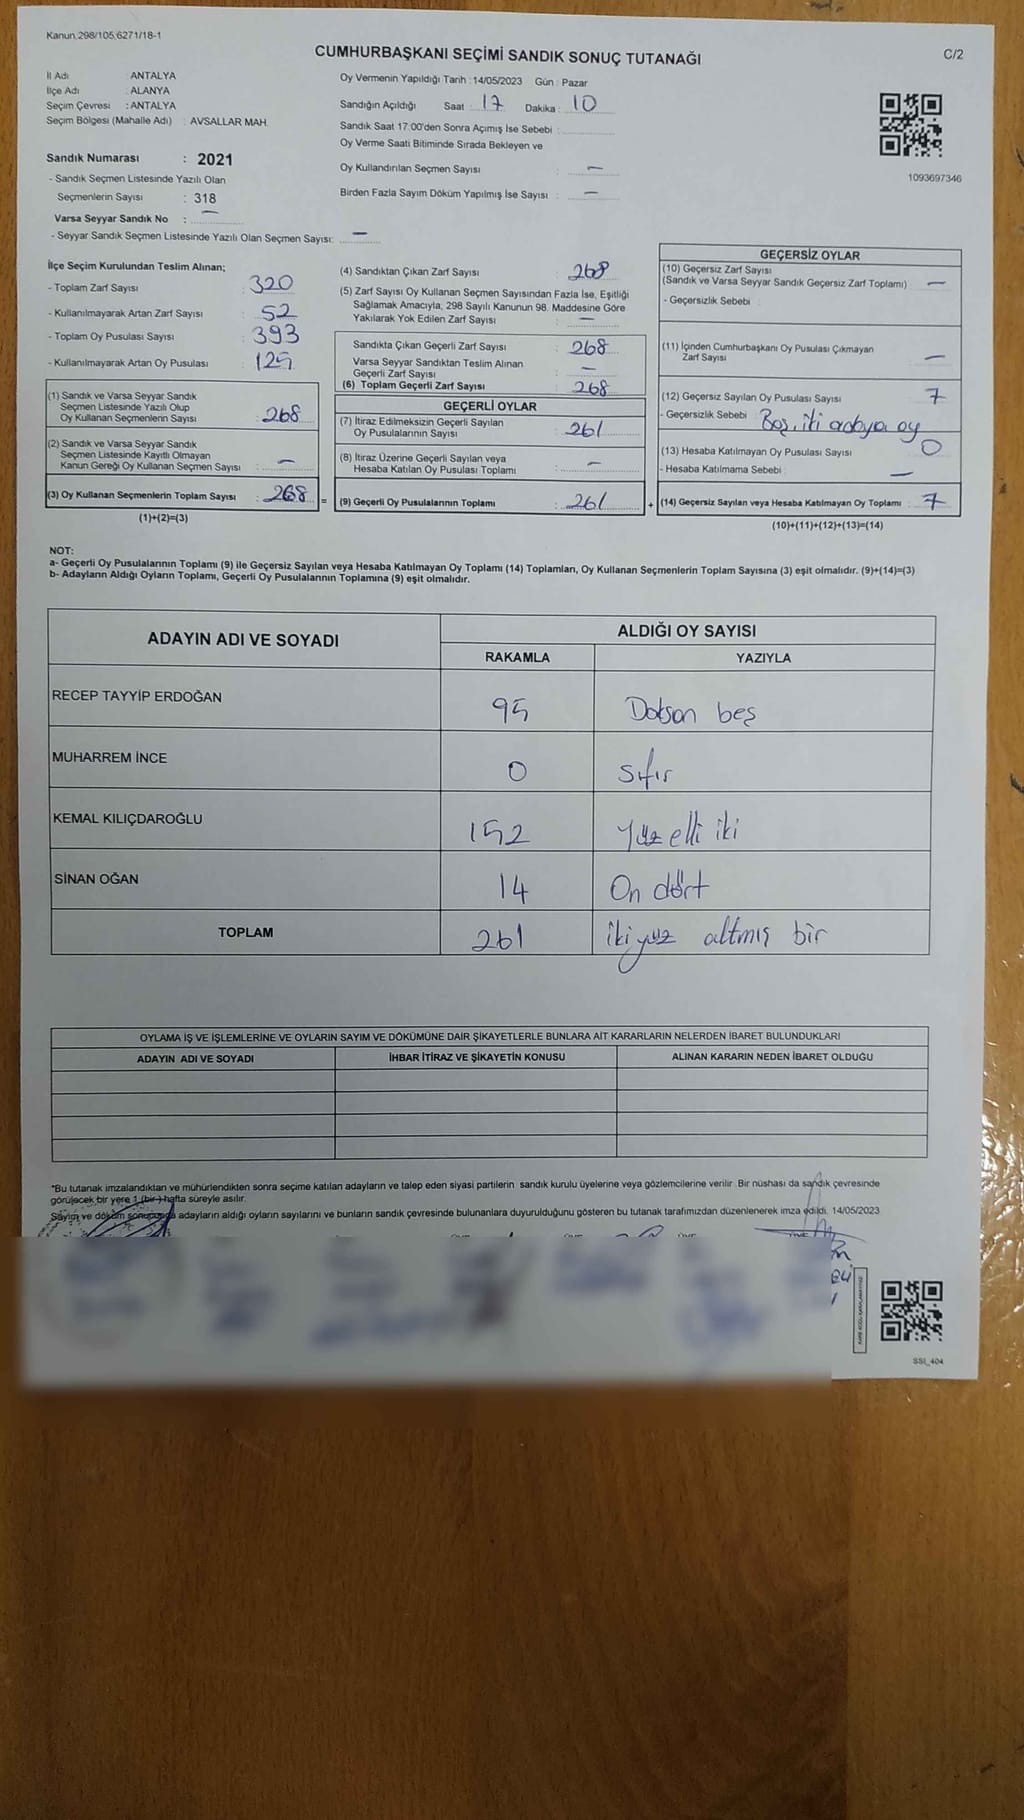 Kanun,298/105,6271/18-1
CUMHURBAŞKANI SEÇİMİ SANDIK SONUÇ TUTANAĞI
C/2
İl Adı : ANTALYA
İlçe Adı : ALANYA
Seçim Çevresi : ANTALYA
Seçim Bölgesi (Mahalle Adı) : AVSALLAR MAH.
Sandık Numarası : 2021
- Sandık Seçmen Listesinde Yazılı Olan
Seçmenlerin Sayısı : 318
Varsa Seyyar Sandık No : —
- Seyyar Sandık Seçmen Listesinde Yazılı Olan Seçmen Sayısı: —
Oy Vermenin Yapıldığı Tarih : 14/05/2023 Gün : Pazar
Sandığın Açıldığı Saat : 17 Dakika : 10
Sandık Saat 17:00'den Sonra Açımış İse Sebebi :
Oy Verme Saati Bitiminde Sırada Bekleyen ve
Oy Kullandırılan Seçmen Sayısı : —
Birden Fazla Sayım Döküm Yapılmış İse Sayısı : —
1093697346
İlçe Seçim Kurulundan Teslim Alınan;
- Toplam Zarf Sayısı : 320
- Kullanılmayarak Artan Zarf Sayısı : 52
- Toplam Oy Pusulası Sayısı : 393
- Kullanılmayarak Artan Oy Pusulası : 125
(1) Sandık ve Varsa Seyyar Sandık
Seçmen Listesinde Yazılı Olup
Oy Kullanan Seçmenlerin Sayısı : 268
(2) Sandık ve Varsa Seyyar Sandık
Seçmen Listesinde Kayıtlı Olmayan
Kanun Gereği Oy Kullanan Seçmen Sayısı : —
(3) Oy Kullanan Seçmenlerin Toplam Sayısı : 268 =
(1)+(2)=(3)
(4) Sandıktan Çıkan Zarf Sayısı : 268
(5) Zarf Sayısı Oy Kullanan Seçmen Sayısından Fazla İse, Eşitliği
Sağlamak Amacıyla, 298 Sayılı Kanunun 98. Maddesine Göre
Yakılarak Yok Edilen Zarf Sayısı : —
Sandıkta Çıkan Geçerli Zarf Sayısı : 268
Varsa Seyyar Sandıktan Teslim Alınan
Geçerli Zarf Sayısı : —
(6) Toplam Geçerli Zarf Sayısı : 268
GEÇERLİ OYLAR
(7) İtiraz Edilmeksizin Geçerli Sayılan
Oy Pusulalarının Sayısı : 261
(8) İtiraz Üzerine Geçerli Sayılan veya
Hesaba Katılan Oy Pusulası Toplamı : —
(9) Geçerli Oy Pusulalarının Toplamı : 261 +
GEÇERSİZ OYLAR
(10) Geçersiz Zarf Sayısı
(Sandık ve Varsa Seyyar Sandık Geçersiz Zarf Toplamı) —
- Geçersizlik Sebebi :
(11) İçinden Cumhurbaşkanı Oy Pusulası Çıkmayan
Zarf Sayısı —
(12) Geçersiz Sayılan Oy Pusulası Sayısı 7
- Geçersizlik Sebebi Boş, iki adaya oy
(13) Hesaba Katılmayan Oy Pusulası Sayısı 0
- Hesaba Katılmama Sebebi : —
(14) Geçersiz Sayılan veya Hesaba Katılmayan Oy Toplamı : 7
(10)+(11)+(12)+(13)=(14)
NOT:
a- Geçerli Oy Pusulalarının Toplamı (9) ile Geçersiz Sayılan veya Hesaba Katılmayan Oy Toplamı (14) Toplamları, Oy Kullanan Seçmenlerin Toplam Sayısına (3) eşit olmalıdır. (9)+(14)=(3)
b- Adayların Aldığı Oyların Toplamı, Geçerli Oy Pusulalarının Toplamına (9) eşit olmalıdır.
ADAYIN ADI VE SOYADI ALDIĞI OY SAYISI
RAKAMLA YAZIYLA
RECEP TAYYİP ERDOĞAN 95 Doksan beş
MUHARREM İNCE 0 Sıfır
KEMAL KILIÇDAROĞLU 152 Yüz elli iki
SİNAN OĞAN 14 On dört
TOPLAM 261 iki yüz altmış bir
OYLAMA İŞ VE İŞLEMLERİNE VE OYLARIN SAYIM VE DÖKÜMÜNE DAİR ŞİKAYETLERLE BUNLARA AİT KARARLARIN NELERDEN İBARET BULUNDUKLARI
ADAYIN ADI VE SOYADI İHBAR İTİRAZ VE ŞİKAYETİN KONUSU ALINAN KARARIN NEDEN İBARET OLDUĞU
*Bu tutanak imzalandıktan ve mühürlendikten sonra seçime katılan adayların ve talep eden siyasi partilerin sandık kurulu üyelerine veya gözlemcilerine verilir .Bir nüshası da sandık çevresinde
görülecek bir yere 1 (bir ) hafta süreyle asılır.
Sayım ve döküm sonucunda adayların aldığı oyların sayılarını ve bunların sandık çevresinde bulunanlara duyurulduğunu gösteren bu tutanak tarafımızdan düzenlenerek imza edildi. 14/05/2023
SSI_404